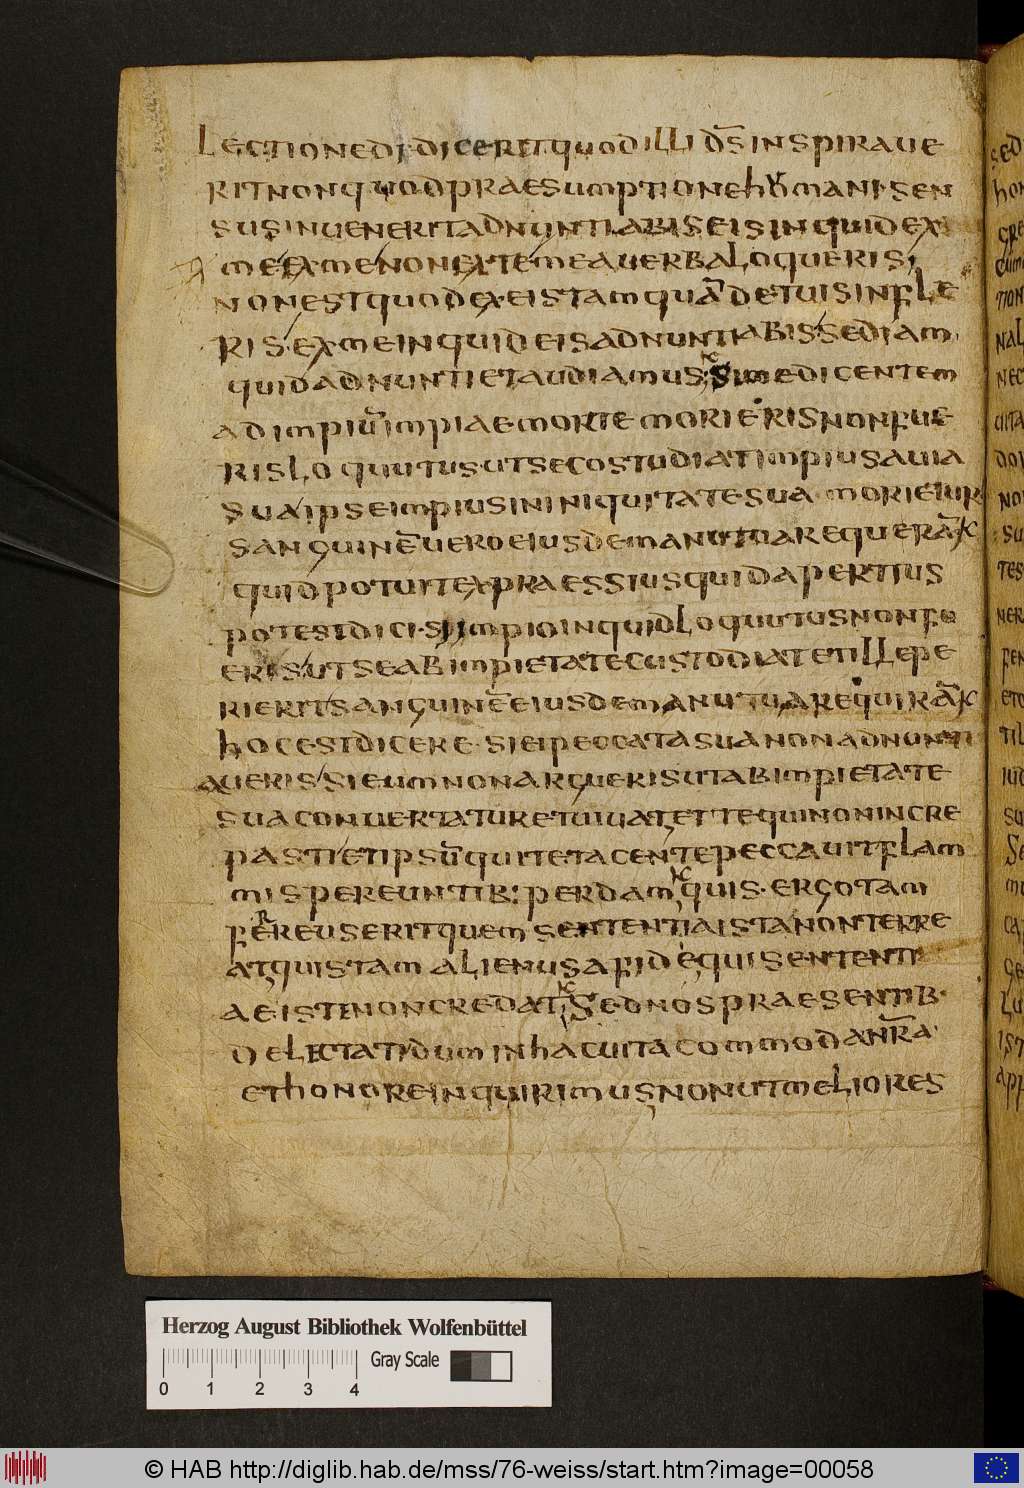 LECTIONEDIDICERITQUODILLIDSINSPIRAUE
RITNONQUODPRAESUMPTIONEHUMANISEN
SUSINUENERITADNUNTIABISEISINQUIDEX
MEEXMENONEXTEMEAUERBALOQUERIS
NONESTQUODEXEISTAMQUADETUISINFLE
RIS·EXMEINQUIDEISADNUNTIABISSEDIAM
QUIDADNUNTIETAUDIAMUSSUMEDICENTEM
ADIMPIUIMPIAEMORTEMORIERISNONFUE
RISLOQUUTUS·UTSECOSTUDIATIMPIUSAUIA
SUAIPSEIMPIUSININIQUITATESUAMORIETUR
SANGUINEUEROEIUSDEMANUTUAREQUERA
QUIDPOTUITEXPRAESSIUSQUIDAPERTIUS
POTESTDICI·SIIMPIOINQUIDLOQUUTUSNONFU
ERISUTSEABIMPIETATECUSTODIATETILLEPE
RIERITSANGUINEEIUSDEMANUTUAREQUIRA
HOCESTDICERE·SIEIPECCATASUANONADNUNTI
AUERISSIEUMNONARGUERISUTABIMPIETATE
SUACONUERTATURETUIUATETTEQUINONINCRE
PASTIETIPSUQUITETACENTEPECCAUITFLAM
MISPEREUNTIB:PERDAMQUIS·ERGOTAM
FERREUSERITQUEMSENTENTIAISTANONTERRE
ATQUISTAMALIENUSAFIDEQUISENTENTI
AEISTINONCREDATSEDNOSPRAESENTIB·
DELECTATIDUMINHACUITACOMMODANRA·
ETHONOREINQUIRIMUSNONUTMELIORES
Herzog August Bibliothek Wolfenbüttel
Gray Scale
0 1 2 3 4
© HAB http://diglib.hab.de/mss/76-weiss/start.htm?image=00058